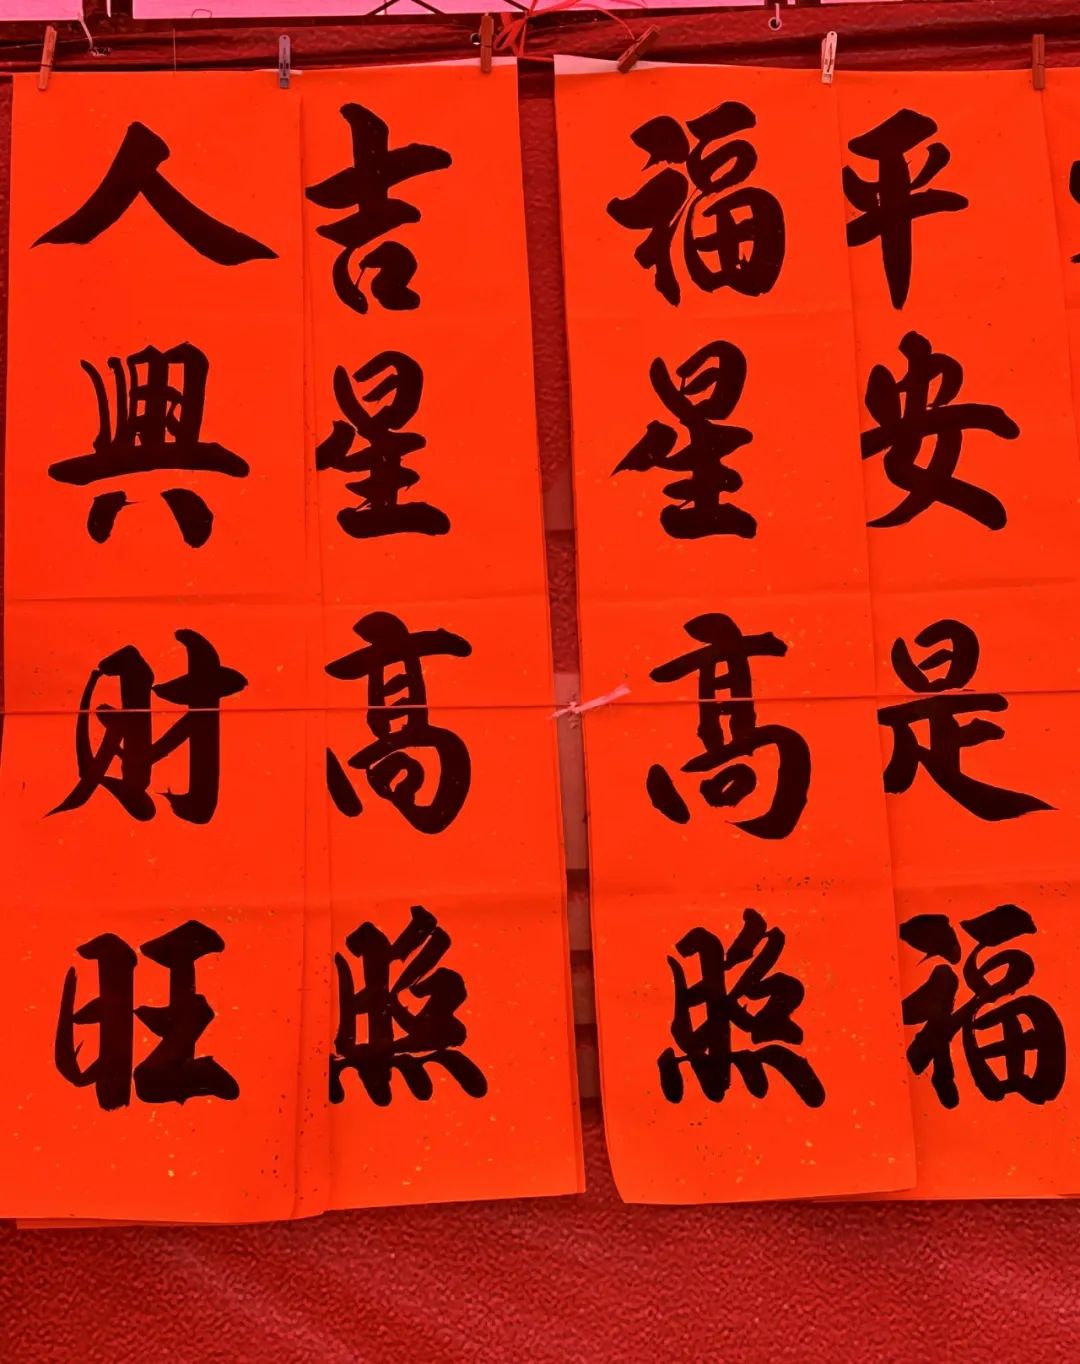 人興財旺
吉星高照
福星高照
平安是福